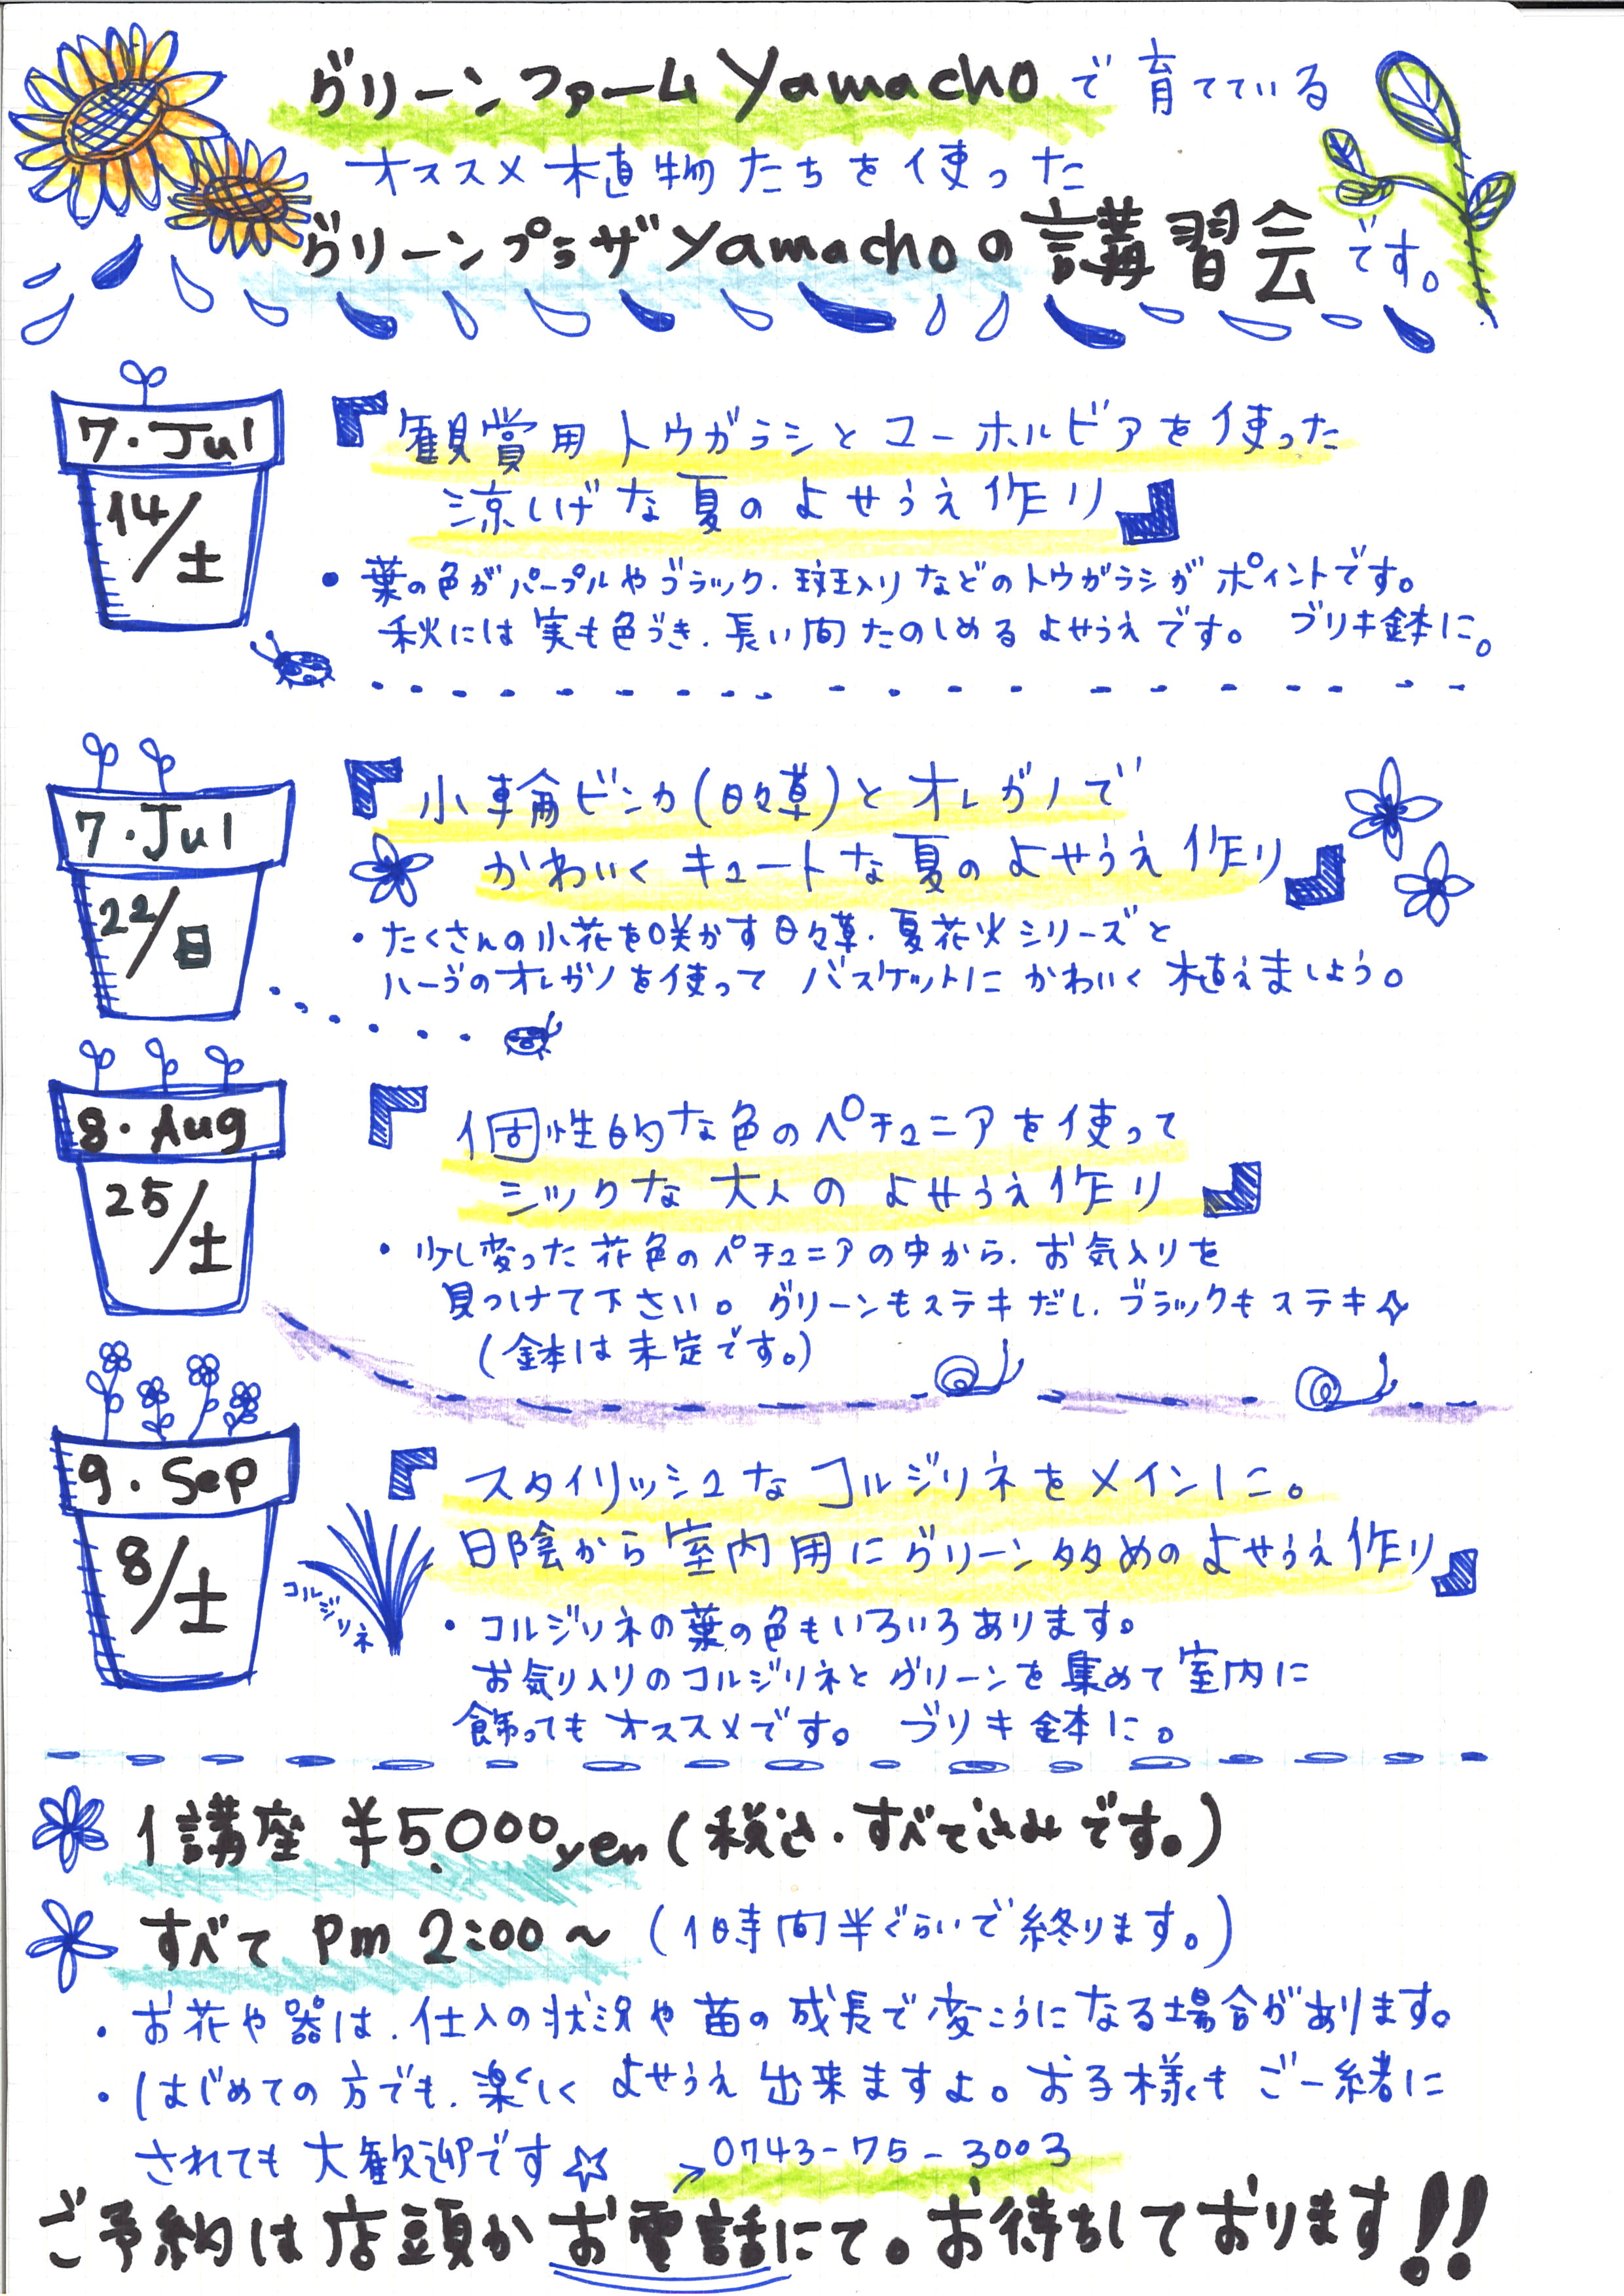 グリーンファーム Yamacho で育てている
オススメ植物たちを使った
グリーンプラザ Yamachoの講習会です。
7・Jul
14/土
『観賞用トウガラシとユーホルビアを使った
涼しげな夏のよせうえ作り』
・葉の色がパープルやブラック、斑入りなどのトウガラシがポイントです。
秋には実も色づき、長い間たのしめるよせうえです。 ブリキ鉢に。
7・Jul
22/日
『小輪ビンカ(日々草)とオレガノで
かわいくキュートな夏のよせうえ作り』
・たくさんの小花を咲かす日々草、夏花火シリーズと
ハーブのオレガノを使って バスケットにかわいく植えましょう。
8・Aug
25/土
『個性的な色のペチュニアを使って
シックな大人のよせうえ作り』
・少し変った花色のペチュニアの中から、お気入りを
見つけて下さい。グリーンもステキだし、ブラックもステキ☆
(鉢は未定です。)
9・Sep
8/土
コルジリネ
『スタイリッシュなコルジリネをメインに。
日陰から室内用にグリーン多めのよせうえ作り』
・コルジリネの葉の色もいろいろあります。
お気り入りのコルジリネとグリーンを集めて室内に
飾ってもオススメです。 ブリキ鉢に。
1講座 ¥5,000yen(税込・すべてこみです。)
すべて pm 2:00〜(1時間半ぐらいで終ります。)
・お花や器は、仕入の状況や苗の成長で変こうになる場合があります。
・はじめての方でも、楽しくよせうえ出来ますよ。お子様もご一緒に
されても大歓迎です☆
→0743-75-3003
ご予約は店頭かお電話にて。お待ちしております!!